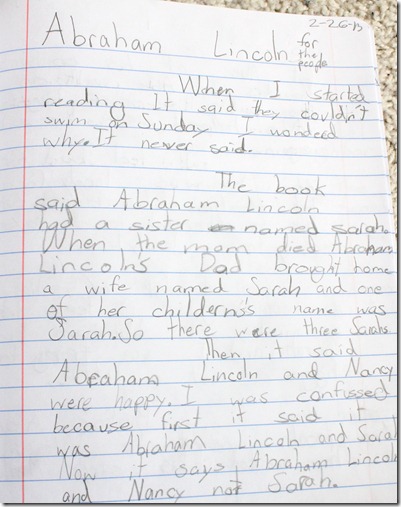 2-26-13
Abraham Lincoln for the people
When I started
reading It said they couldn't
swim on Sunday I wonderd
why. It never said.
The book
said Abraham Lincoln
had a sister named sarah.
When the mom died Abraham
Lincoln's Dad brought home
a wife named Sarah and one
of her childerns's name was
Sarah. So there were three Sarahs
Then it said
Abraham Lincoln and Nancy
were happy. I was confussed
because first it said it
was Abraham Lincoln and Sarah
Now it says Abraham Lincoln
and Nancy not Sarah.